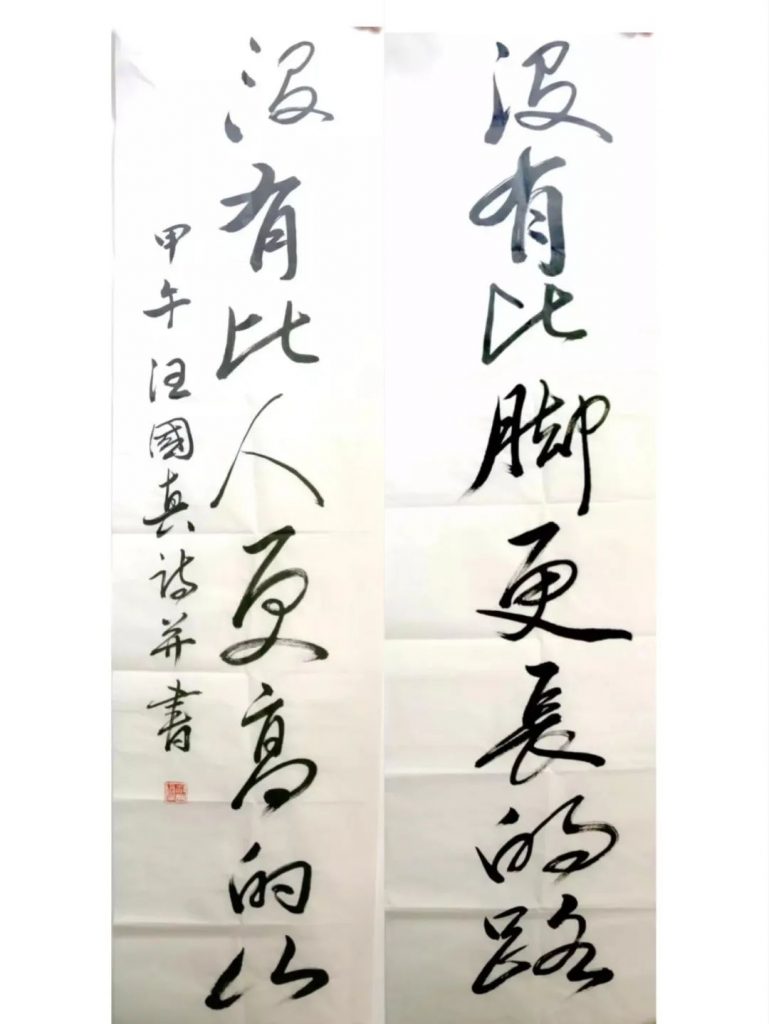 没有比脚更長的路
没有比人更高的山
甲午汪國真诗并書